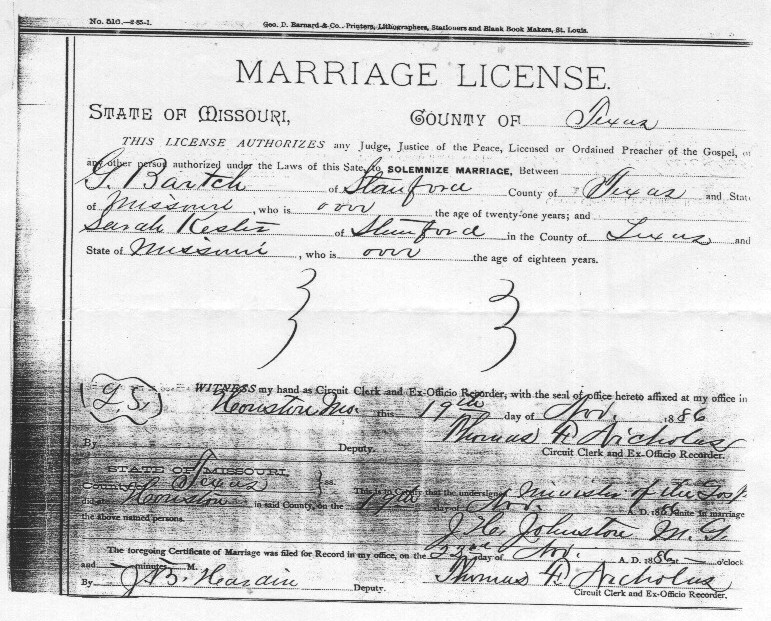 No. 516.—2-85-1. Geo. D. Barnard & Co., Printers, Lithographers, Stationers and Blank Book Makers, St. Louis.
MARRIAGE LICENSE.
STATE OF MISSOURI, COUNTY OF Texas
THIS LICENSE AUTHORIZES any Judge, Justice of the Peace, Licensed or Ordained Preacher of the Gospel, or
any other person authorized under the Laws of this Sate, to SOLEMNIZE MARRIAGE, Between
G. Bartch of Stanford County of Texas and State
of Missouri, who is over the age of twenty-one years; and
Sarah Kesler of Stanford in the County of Texas and
State of Missouri, who is over the age of eighteen years.
L.S. WITNESS my hand as Circuit Clerk and Ex-Officio Recorder, with the seal of office hereto affixed at my office in
Houston Mo. this 19th day of Nov. 1886
Thomas Nicholas
By Deputy. Circuit Clerk and Ex-Officio Recorder.
STATE OF MISSOURI,
County of Texas ss. This is to Certify that the undersigned Minister of the Gosp
Houston in said County, on the 19th day of Nov. A. D. 1886 unite in marriage
the above named persons. Johnston M.G.
The foregoing Certificate of Marriage was filed for Record in my office, on the 22nd day of Nov. A. D. 1886 at — o'clock
and — minutes — M. Thomas Nicholas
By J.B. Hardin Deputy. Circuit Clerk and Ex-Officio Recorder.